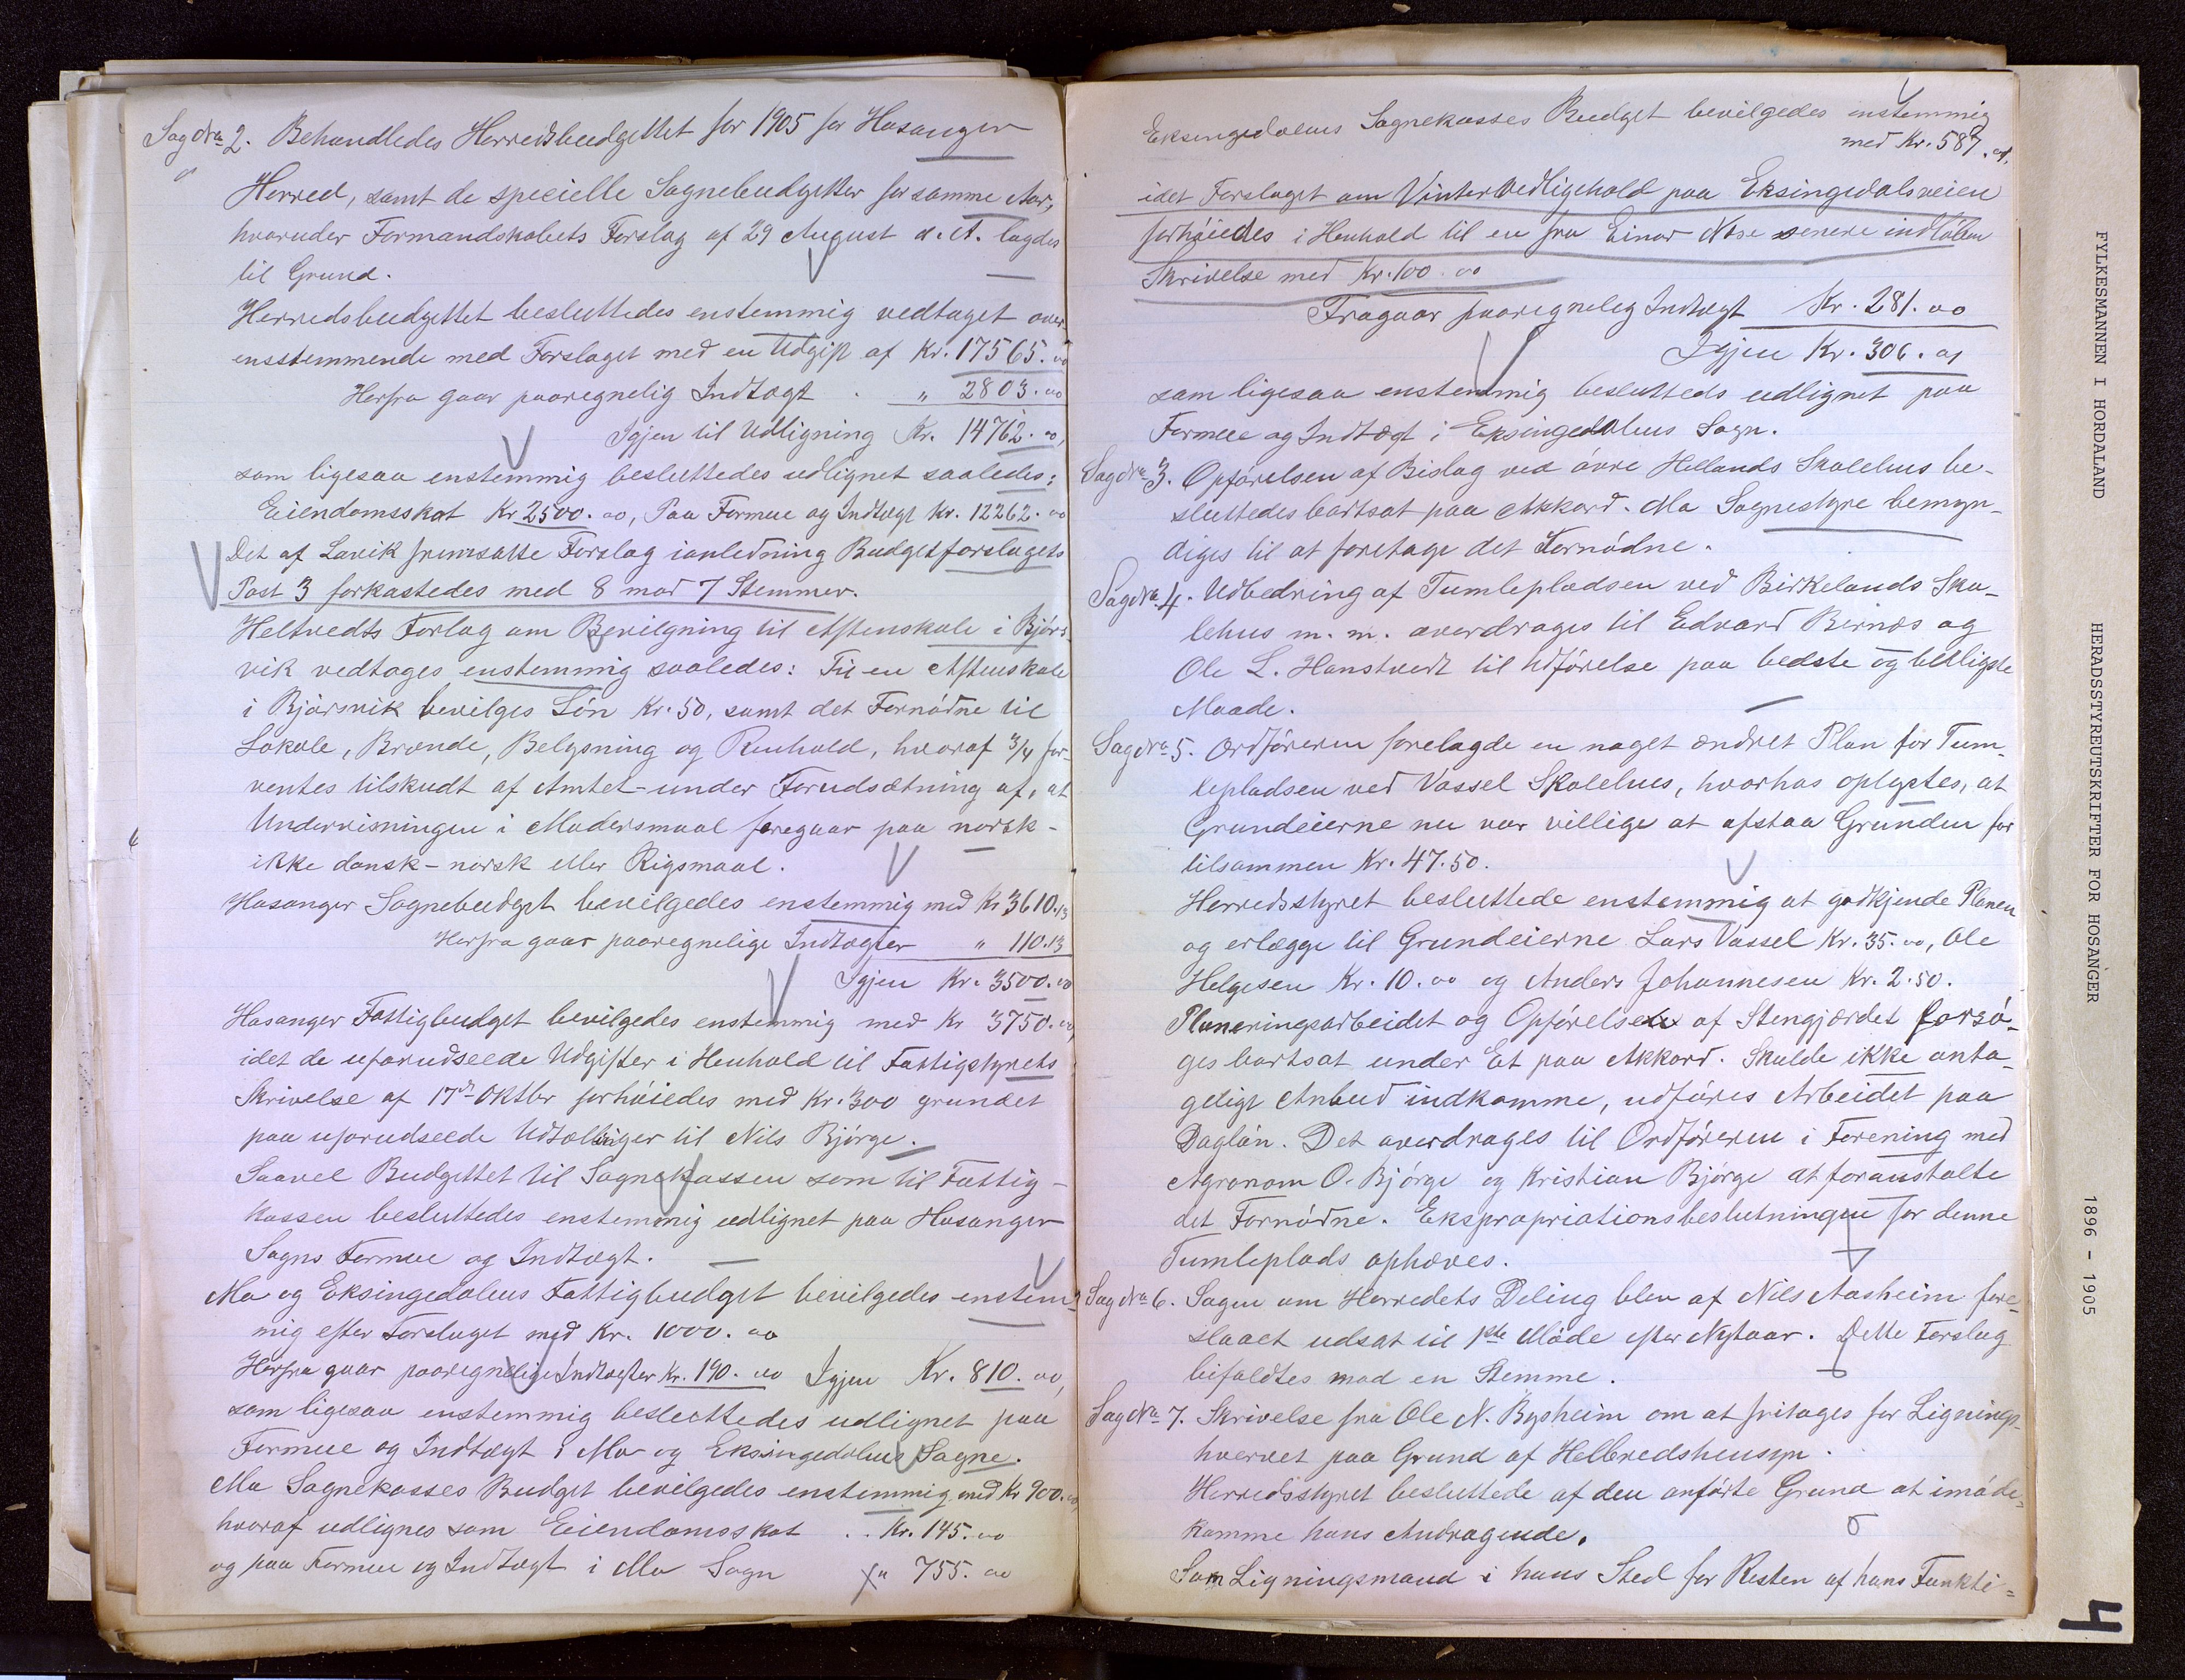 Sag No 2. Behandledes Herredsbudgettet for 1905 for Hosanger
Herred, samt de specielle Sognebudgetter for samme Aar,
hvorunder Formandskabets Forslag af 29 August d. A. lagdes
til Grund.
Herredsbudgettet besluttedes enstemmig vedtaget over-
ensstemmende med Forslaget med en Udgift af Kr. 17565.00
Herfra gaar paaregnelig Indtægt . „ 2803.00
Igjen til Udligning Kr. 14762.00,
som ligesaa enstemmig besluttedes udlignet saaledes:
Eiendomsskat Kr 2500.00, Paa Formue og Indtægt Kr. 12262.00
Det af Lavik fremsatte Forslag ianledning Budgetforslagets
Post 3 forkastedes med 8 mod 7 Stemmer.
Heltvedts Forlag om Bevilgning til Aftenskole i Bjørs-
vik vedtages enstemmig saaledes: Til en Aftenskole
i Bjørsvik bevilges Løn Kr. 50, samt det Fornødne til
Lokale, Brænde, Belysning og Renhold, hvoraf 3/4 for-
ventes tilskudt af Amtet - under Forudsætning af, at
Undervisningen i Modersmaal foregaar paa norsk -
ikke dansk-norsk eller Rigsmaal.
Hosanger Sognebudget bevilgedes enstemmig med Kr 3610.13
Herfra gaar paaregnelige Indtægter „ 110.13
Igjen Kr. 3500.00
Hosanger Fattigbudget bevilgedes enstemmig med Kr 3750.00,
idet de uforudseede Udgifter i Henhold til Fattigstyrets
Skrivelse af 17de Oktbr forhøiedes med Kr. 300 grundet
paa uforudseede Udtællinger til Nils Bjørge.
Saavel Budgettet til Sognekassen som til Fattig-
kassen besluttedes enstemmig udlignet paa Hosanger
Sogns Formue og Indtægt.
Mo og Eksingedalens Fattigbudget bevilgedes enstem-
mig efter Forslaget med Kr. 1000.00
Herfra gaar paaregnelige Indtægter Kr. 190.00 Igjen Kr. 810.00,
som ligesaa enstemmig besluttedes udlignet paa
Formue og Indtægt i Mo og Eksingedalens Sogne.
Mo Sognekasses Budget bevilgedes enstemmig med Kr 900.00,
hvoraf udlignes som Eiendomsskat . . Kr. 145.00
og paa Formue og Indtægt i Mo Sogn „ 755.00
Eksingedalens Sognekasses Budget bevilgedes enstemmig
med Kr. 587.01.
idet Forslaget om Vintervedligehold paa Eksingedalsveien
forhøiedes i Henhold til en fra Einar Nese senere indløben
Skrivelse med Kr. 100.00
Fragaar paaregnelig Indtægt Kr. 281.00
Igjen Kr. 306.01
som ligesaa enstemmig beslutteds udlignet paa
Formue og Indtægt i Eksingedalens Sogn.
Sag No 3. Opførelsen af Bislag ved øvre Hellands Skolehus be-
sluttedes bortsat paa Akkord. Mo Sognestyre bemyn-
diges til at foretage det Fornødne.
Sag No 4. Udbedring af Tumlepladsen ved Birkelands Sko-
lehus m. m. overdrages til Edvard Birnes og
Ole L. Hanstvedt til Udførelse paa bedste og billigste
Maade.
Sag No 5. Ordføreren forelagde en noget ændret Plan for Tum-
lepladsen ved Vassel Skolehus, hvorhos oplystes, at
Grundeierne nu var villige at afstaa Grunden for
tilsammen Kr. 47.50.
Herredsstyret besluttede enstemmig at godkjende Planen
og erlægge til Grundeierne Lars Vassel Kr. 35.00, Ole
Helgesen Kr. 10.00 og Anders Johannesen Kr. 2.50.
Planeringsarbeidet og Opførelsen af Stengjærdet forsø-
ges bortsat under Et paa Akkord. Skulde ikke anta-
geligt Anbud indkomme, udføres Arbeidet paa
Dagløn. Det overdrages til Ordføreren i Forening med
Agronom O. Bjørge og Kristian Bjørge at foranstalte
det Fornødne. Ekspropriationsbeslutningen for denne
Tumleplads ophæves.
Sag No 6. Sagen om Herredets Deling blev af Nils Aasheim fore-
slaaet udsat til 1ste Møde efter Nytaar. Dette Forslag
bifaldtes mod en Stemme.
Sag No 7. Skrivelse fra Ole N. Bysheim om at fritages for Lignings-
hvervet paa Grund af Helbredshensyn.
Herredsstyret besluttede af den anførte Grund at imøde-
komme hans Andragende.
Som Ligningsmand i hans Sted for Resten af hans Funkti-
FYLKESMANNEN I HORDALAND HERADSSTYREUTSKRIFTER FOR HOSANGER 1896 - 1905
4